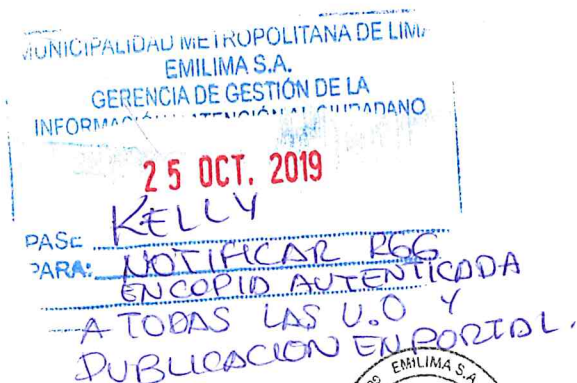 MUNICIPALIDAD METROPOLITANA DE LIMA
EMILIMA S.A.
GERENCIA DE GESTIÓN DE LA
INFORMACIÓN Y ATENCIÓN AL CIUDADANO
25 OCT. 2019
PASE KELLY
PARA: NOTIFICAR RGG
EN COPIA AUTENTICADA
A TODAS LAS U.O Y
PUBLICACION EN PORTAL.
EMILIMA S.A.